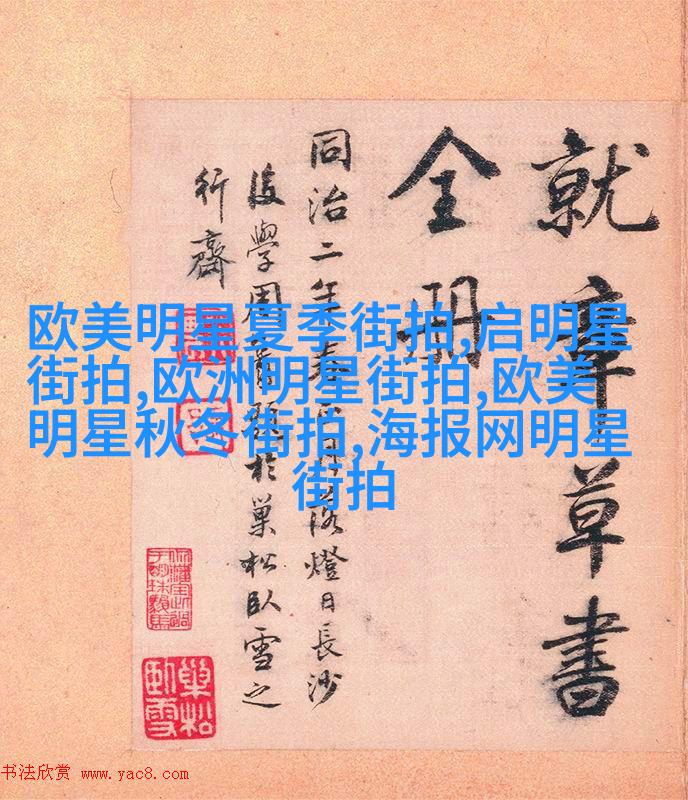 就章草書
全冊
同治二年春正月落燈日長沙
後學周題於巢松臥雪之
行齋
欧美明星夏季街拍,启明星
街拍,欧洲明星街拍,欧美
明星秋冬街拍,海报网明星
街拍
巢松
臥雪
书法欣赏 www.yac8.com